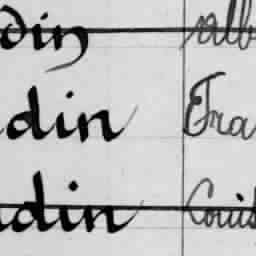 din alb
din Fra
din Couis